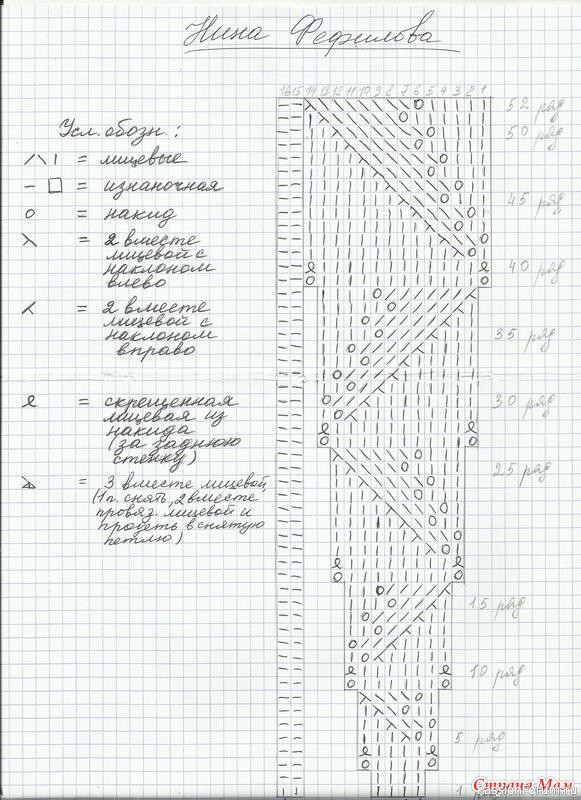 Нина Фефилова
16 15 14 13 12 11 10 9 8 7 6 5 4 3 2 1
Усл. обозн.:
= лицевые
= изнаночная
= накид
= 2 вместе
лицевой с
наклоном
влево
= 2 вместе
лицевой с
наклоном
вправо
= скрещенная
лицевая из
накида
(за заднюю
стенку)
= 3 вместе лицевой
(1 п. снять, 2 вместе
провяз. лицевой и
продеть в снятую
петлю)
52 ряд
50 ряд
45 ряд
40 ряд
35 ряд
30 ряд
25 ряд
15 ряд
10 ряд
5 ряд
1
Страна Мам
PassionForum.ru